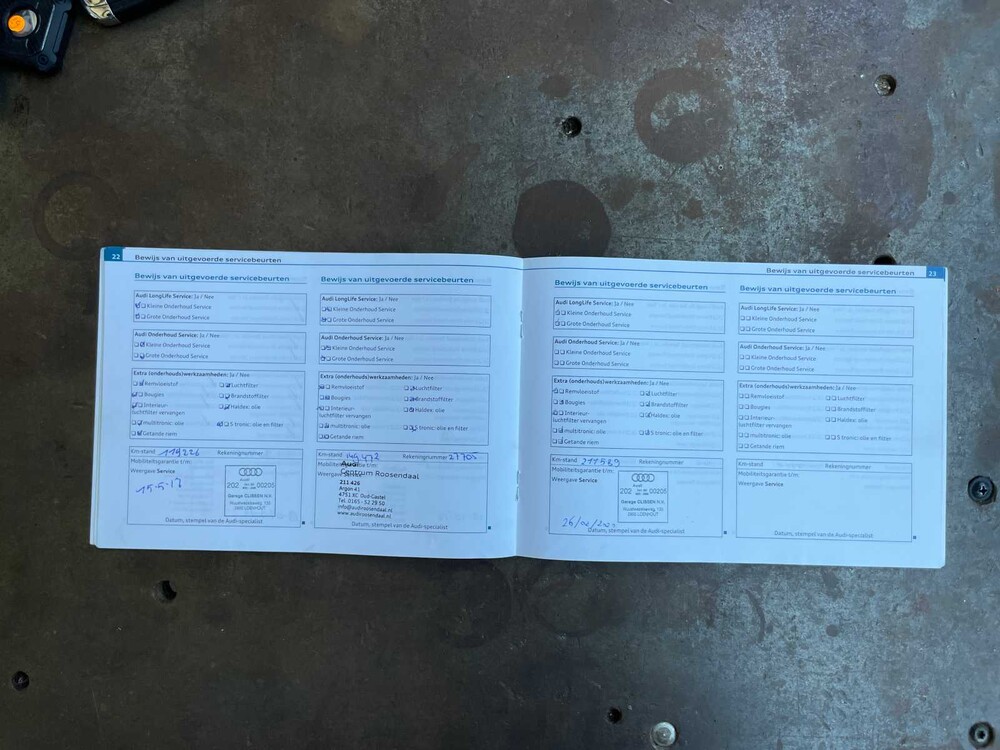 22 Bewijs van uitgevoerde servicebeurten
Bewijs van uitgevoerde servicebeurten
Audi LongLife Service: Ja / Nee
Kleine Onderhoud Service
Grote Onderhoud Service
Audi Onderhoud Service: Ja / Nee
Kleine Onderhoud Service
Grote Onderhoud Service
Extra (onderhouds)werkzaamheden: Ja / Nee
Remvloeistof Luchtfilter
Bougies Brandstoffilter
Interieur- Haldex: olie
luchtfilter vervangen
multitronic: olie S tronic: olie en filter
Getande riem
Km-stand 119226 Rekeningnummer
Mobiliteitsgarantie t/m:
Weergave Service
15-5-17
Audi
202 00205
Garage CLISSEN N.V.
Datum, stempel van de Audi-specialist
Bewijs van uitgevoerde servicebeurten
Audi LongLife Service: Ja / Nee
Kleine Onderhoud Service
Grote Onderhoud Service
Audi Onderhoud Service: Ja / Nee
Kleine Onderhoud Service
Grote Onderhoud Service
Extra (onderhouds)werkzaamheden: Ja / Nee
Remvloeistof Luchtfilter
Bougies Brandstoffilter
Interieur- Haldex: olie
luchtfilter vervangen
multitronic: olie S tronic: olie en filter
Getande riem
Km-stand 149.472 Rekeningnummer 27705
Mobiliteitsgarantie t/m:
Weergave Service
Audi
Centrum Roosendaal
211.426
Argon 41
4751 XC Oud-Gastel
Tel. 0165 - 52 29 50
info@audiroosendaal.nl
www.audiroosendaal.nl
Datum, stempel van de Audi-specialist
Bewijs van uitgevoerde servicebeurten 23
Bewijs van uitgevoerde servicebeurten
Audi LongLife Service: Ja / Nee
Kleine Onderhoud Service
Grote Onderhoud Service
Audi Onderhoud Service: Ja / Nee
Kleine Onderhoud Service
Grote Onderhoud Service
Extra (onderhouds)werkzaamheden: Ja / Nee
Remvloeistof Luchtfilter
Bougies Brandstoffilter
Interieur- Haldex: olie
luchtfilter vervangen
multitronic: olie S tronic: olie en filter
Getande riem
Km-stand 211589 Rekeningnummer
Mobiliteitsgarantie t/m:
Weergave Service
Audi
202 00205
Garage CLISSEN N.V.
Datum, stempel van de Audi-specialist
Bewijs van uitgevoerde servicebeurten
Audi LongLife Service: Ja / Nee
Kleine Onderhoud Service
Grote Onderhoud Service
Audi Onderhoud Service: Ja / Nee
Kleine Onderhoud Service
Grote Onderhoud Service
Extra (onderhouds)werkzaamheden: Ja / Nee
Remvloeistof Luchtfilter
Bougies Brandstoffilter
Interieur- Haldex: olie
luchtfilter vervangen
multitronic: olie S tronic: olie en filter
Getande riem
Km-stand Rekeningnummer
Mobiliteitsgarantie t/m:
Weergave Service
Datum, stempel van de Audi-specialist